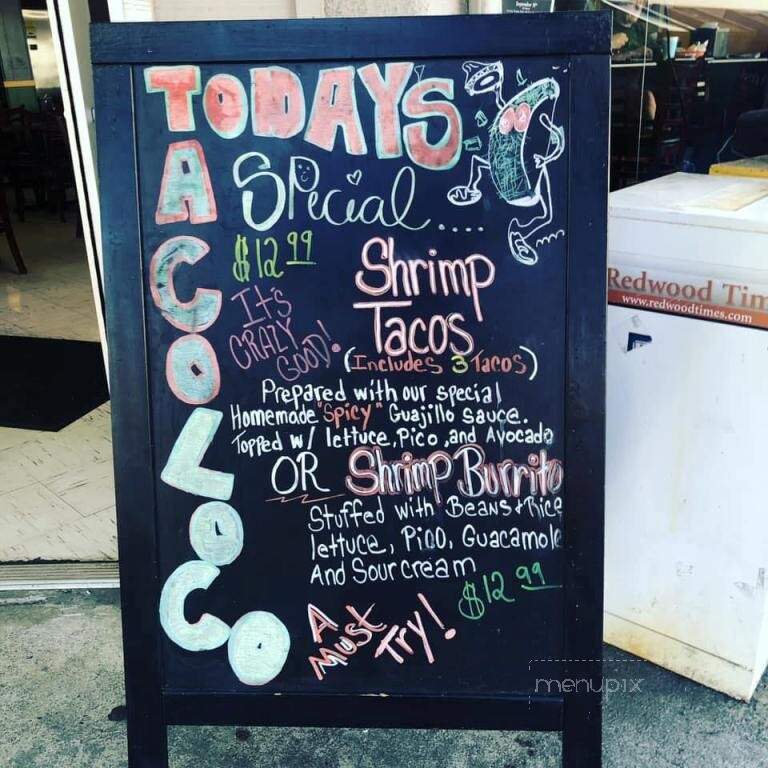 TODAYS
TACO LOCO
Special.....
$12.99
Shrimp
Tacos
It's
CRAZY
GOOD!
(Includes 3 Tacos)
Prepared with our special
Homemade "Spicy" Guajillo sauce.
Topped w/ lettuce, Pico, and Avocado
OR Shrimp Burrito
Stuffed with Beans + Rice
lettuce, Pico, Guacamole
And Sour cream
$12.99
A
MUST
TRY!
Redwood Tim
www.redwoodtimes.com
menupix